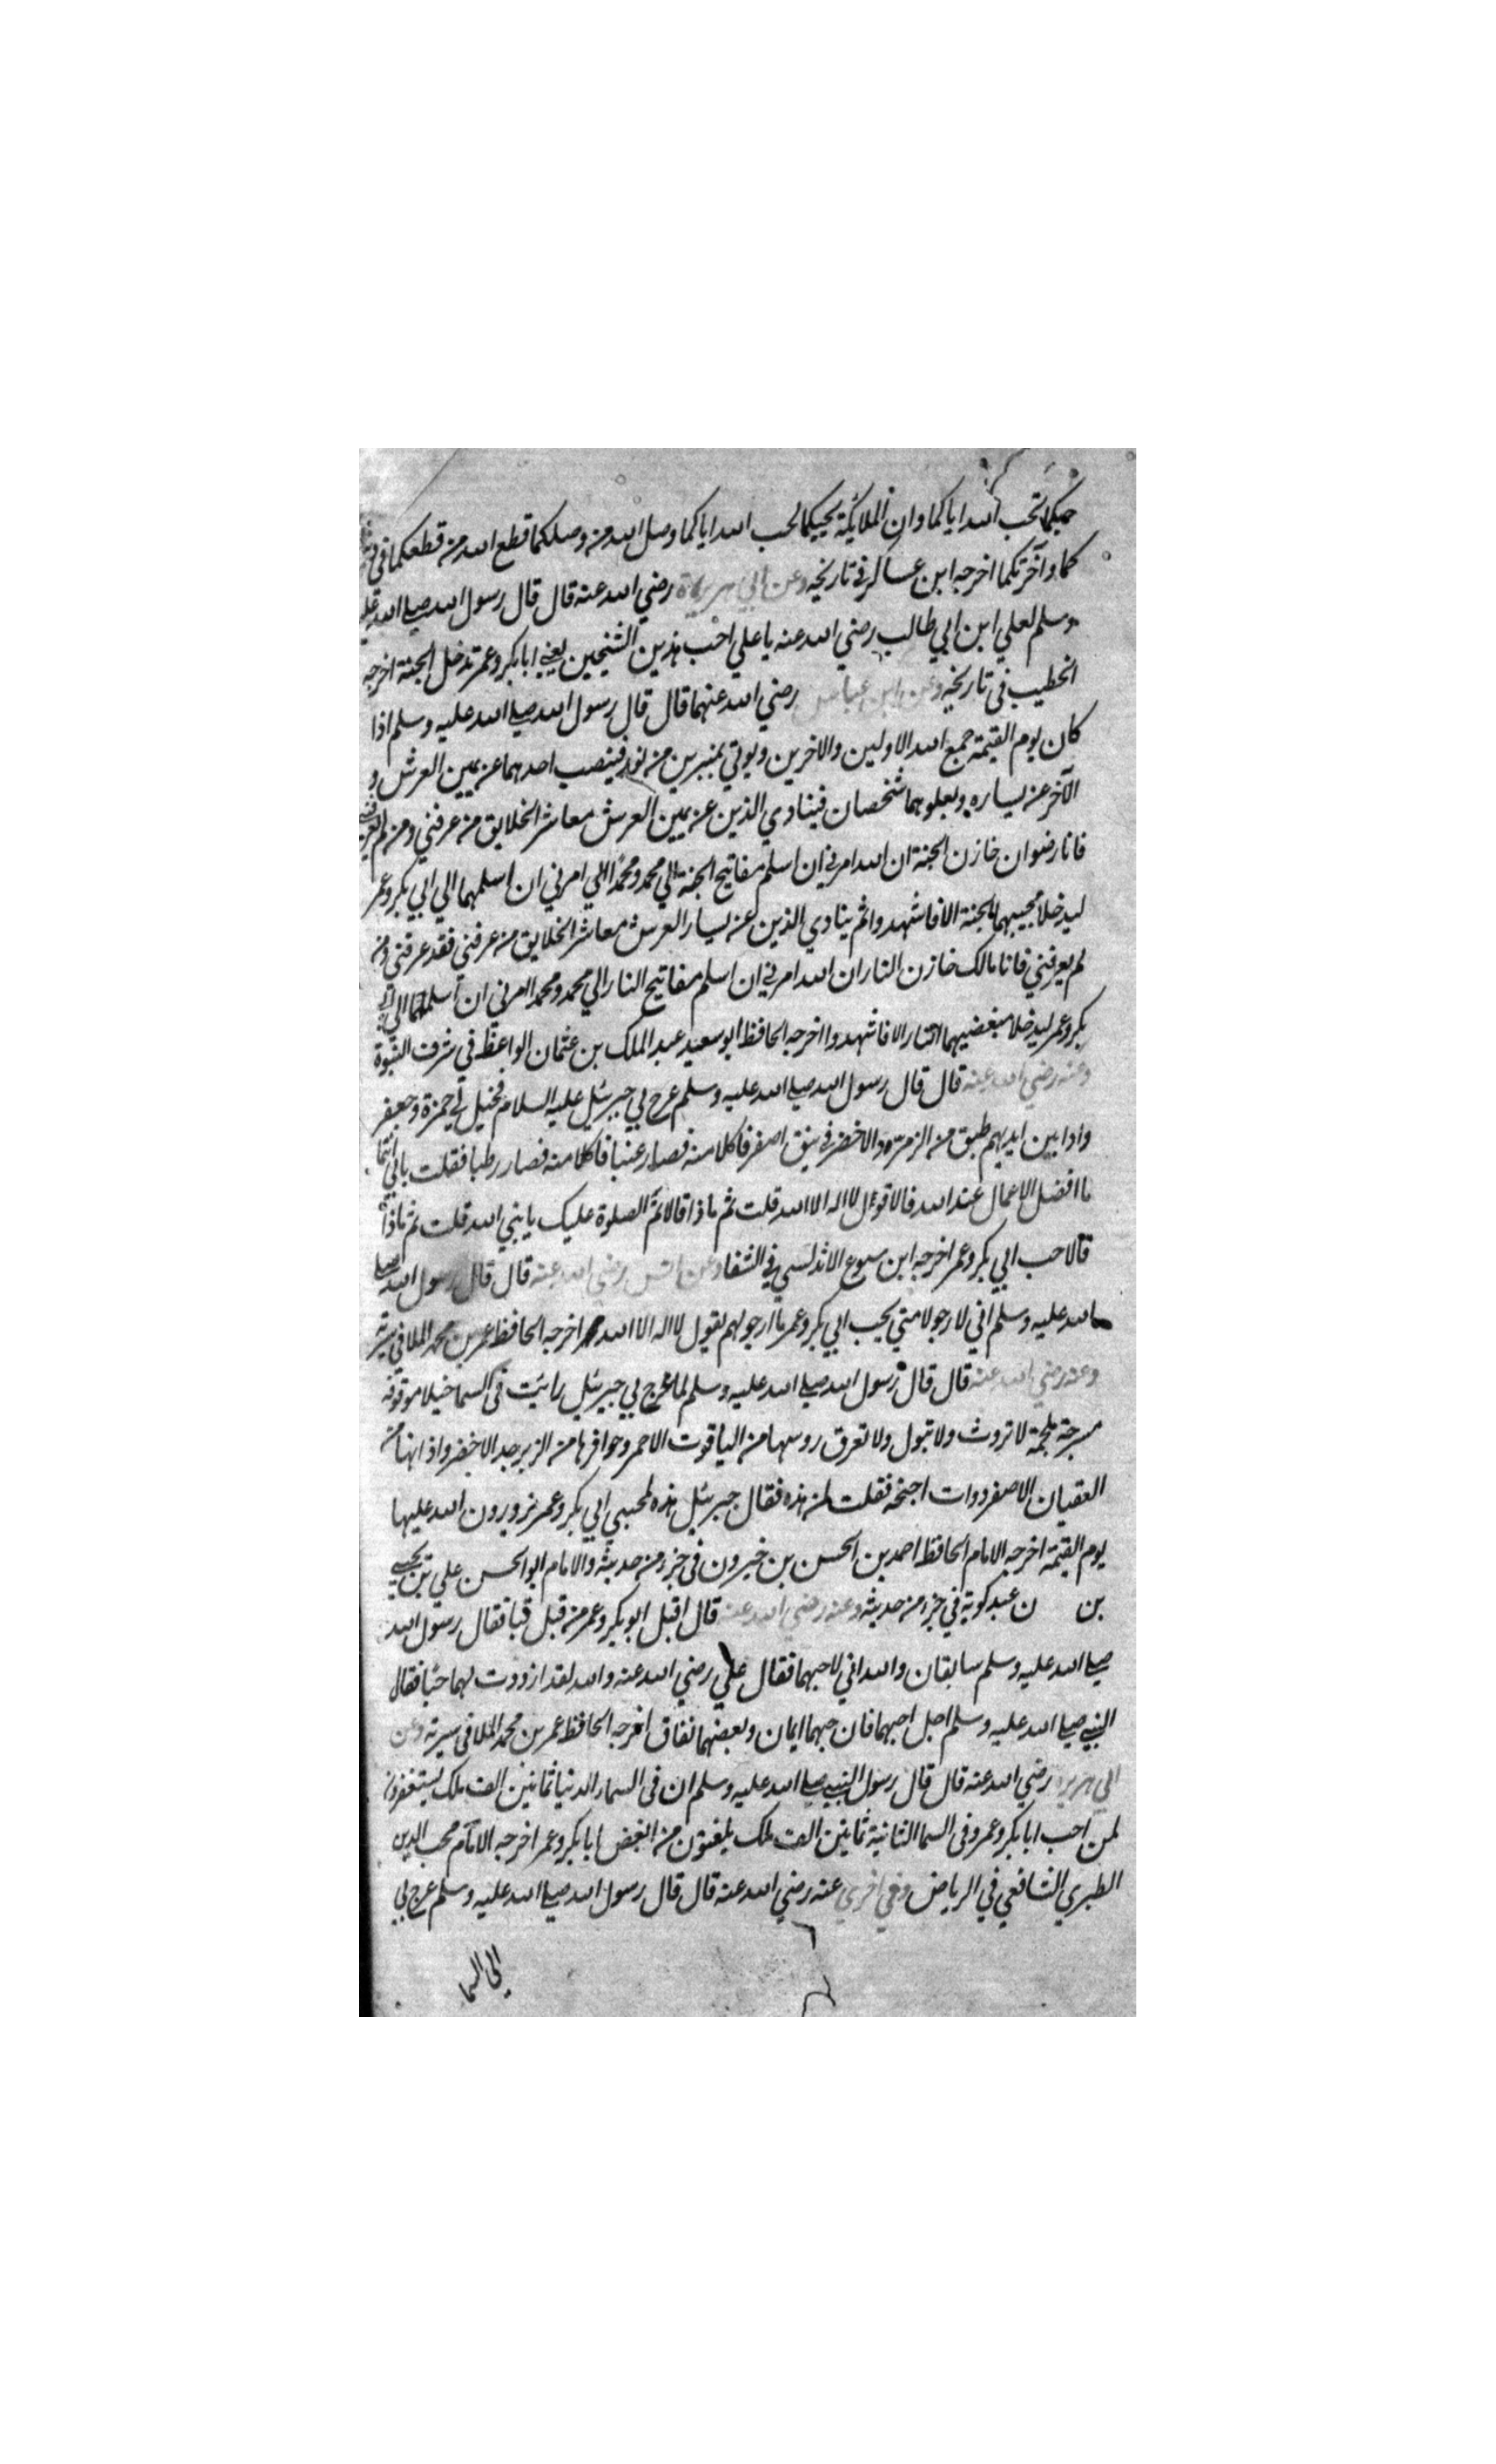 حبكما تحب الله اياكما وان الملايكة يحبكما لحب الله اياكما وصل الله من وصلكما قطع الله من قطعكما في
كما وآخرتكما اخرجه ابن عساكر في تاريخه وعن ابي هريرة رضي الله عنه قال قال رسول الله صلى الله عليه
وسلم لعلي ابن ابي طالب رضي الله عنه يا علي احب هذين الشيخين يعني ابا بكر وعمر تدخل الجنة اخرجه
الخطيب في تاريخه وعن ابن عباس رضي الله عنهما قال قال رسول الله صلى الله عليه وسلم اذا
كان يوم القيمة جمع الله الاولين والاخرين ويوتي بمنبرين من نور فينصب احدهما عن يمين العرش و
الآخر عن يساره ويعلوهما شخصان فينادي الذين عن يمين العرش معاشر الخلايق من عرفني ومن لم يعرفني
فانا رضوان خازن الجنة ان الله امرني ان اسلم مفاتيح الجنة الي محمد ومحمدا اللي امرني ان اسلمهما الي ابي بكر وعمر
ليدخلا محبيهما الجنة الا فاشهدوا ثم ينادي الذين عن يسار العرش معاشر الخلايق من عرفني فقد عرفني ومن
لم يعرفني فانا مالك خازن النار ان الله امرني ان اسلم مفاتيح النار الي محمد ومحمد امرني ان اسلمهما الي ابي
بكر وعمر ليدخلا مبغضيهما النار الا فاشهدوا اخرجه الحافظ ابو سعيد عبد الملك بن عثمان الواعظ في شرف النبوة
وعنه رضي الله عنه قال قال رسول الله صلى الله عليه وسلم عرج بي جبرئيل عليه السلام فخيل لي حمزة وجعفر
واذا بين ايديهم طبق من الزمرد الاخضر في نبق اصفر فاكلا منه فصار عنبا فاكلا منه فصار رطبا فقلت بابي انتما
ما افضل الاعمال عند الله قالا قول لا اله الا الله قلت ثم ماذا قالا ثم الصلوة عليك يا نبي الله قلت ثم ماذا
قالا حب ابي بكر وعمر اخرجه ابن سبوع الاندلسي في الشفا وعن انس رضي الله عنه قال قال رسول الله صلى
الله عليه وسلم اني لارجو لامتي بحب ابي بكر وعمر ما ارجو لهم بقول لا اله الا الله اخرجه الحافظ عمر بن محمد الملا في سيرته
وعنه رضي الله عنه قال قال رسول الله صلى الله عليه وسلم لما عرج بي جبرئيل رايت في السما خيلا موقوفة
مسرجة ملجمة لا تروث ولا تبول ولا تعرق روسها من الياقوت الاحمر وحوافرها من الزبرجد الاخضر واذانها من
العقيان الاصفر ذوات اجنحة فقلت لمن هذه فقال جبرئيل هذه لمحبي ابي بكر وعمر يزورون الله عليها
يوم القيمة اخرجه الامام الحافظ احمد بن الحسن بن خيرون في جزء من حديثه والامام ابو الحسن علي بن يحيى
بن ن عبد كويه في جزء من حديثه وعنه رضي الله عنه قال اقبل ابو بكر وعمر من قبل قبا فقال رسول الله
صلى الله عليه وسلم سابقان والله اني لاحبهما فقال علي رضي الله عنه والله لقد ازددت لهما حبا فقال
النبي صلى الله عليه وسلم اجل احبهما فان حبهما ايمان وبغضهما نفاق اخرجه الحافظ عمر بن محمد الملا في سيرته وعن
ابي هريرة رضي الله عنه قال قال رسول النبي صلى الله عليه وسلم ان في السماء الدنيا ثمانين الف ملك يستغفرون
لمن احب ابا بكر وعمر وفي السما الثانية ثمانين الف ملك يلعنون من ابغض ابا بكر وعمر اخرجه الامام محب الدين
الطبري الشافعي في الرياض وفي اخري عنه رضي الله عنه قال قال رسول الله صلى الله عليه وسلم عرج بي
الى السما